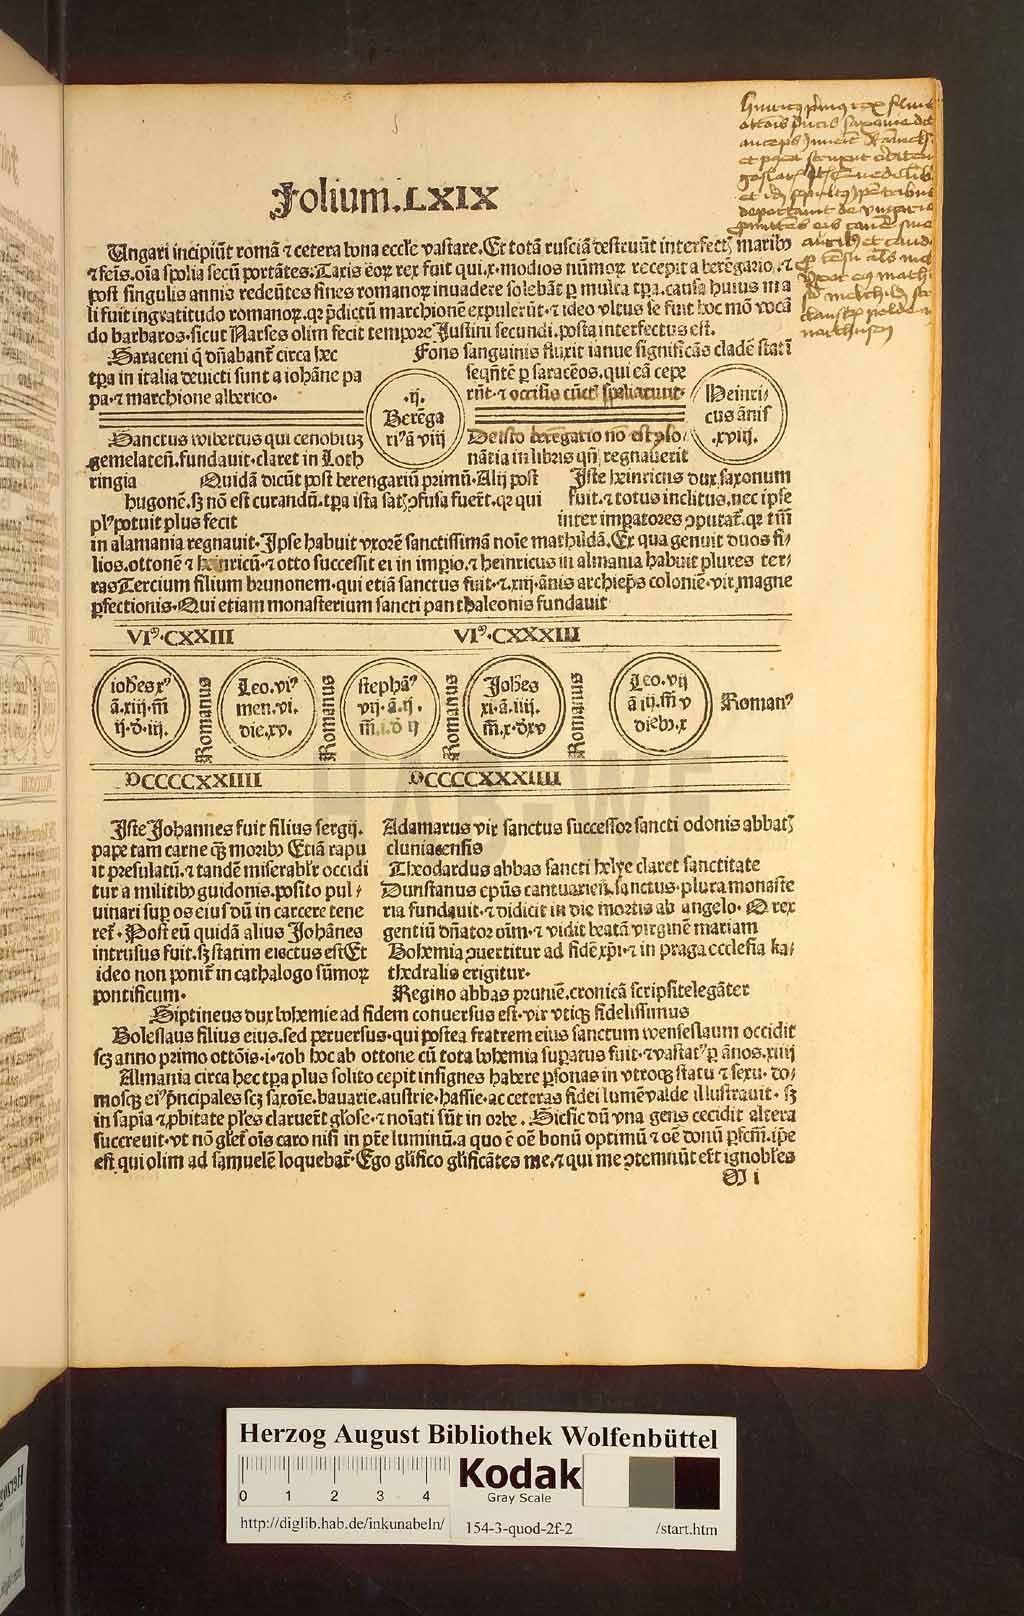 Folium.LXIX
Ungari incipiūt romā ⁊ cetera bona eccl̄e vastare. Et totā rusciā destruūt interfect⁊ maribꝰ
⁊ feīs. oīa spolia secū portātes. Taxis eoꝝ rex fuit qui .x. modios nūmoꝝ recepit a berēgario, ⁊
post singulis annis redeūtes fines romanoꝝ inuadere solebāt ꝑ multa tꝑa. causa huius ma
li fuit ingratitudo romanoꝝ. qꝛ p̄dictū marchionē expulerūt. ⁊ ideo vltus se fuit hoc mō vocā
do barbaros. sicut Narses olim fecit tempore Justini secundi. posta interfectus est.
Saraceni q̄ dn̄abant̄ circa hec
tꝑa in italia deuicti sunt a iohāne pa
pa. ⁊ marchione alberico.
Fons sanguinis fluxit ianue significās cladē stati
seqn̄tē ꝑ saracēos. qui eā cepe
rn̄t. ⁊ occisis cūct⁊ spoliarunt.
.ij.
Berēga
riꝰ ā viij
Heinri-
cus ānis
.xviij.
Sanctus wibertus qui cenobiuꝫ
gemelaten̄. fundauit. claret in Loth
ringia
De isto berēgario nō est
nātia in libris qn̄ regnauerit
Quidā dicūt post berengariū primū. Alij post
hugonē. sꝫ nō est curandū. tꝑa ista satꝭ ꝯfusa fuer̄t. qꝛ qui
plꝰ potuit plus fecit
Iste heinricus dux saxonum
fuit. ⁊ totus inclitus. nec ipse
inter imꝑatores ꝯputat̄. qꝛ tm̄
in alamania regnauit. Ipse habuit vxorē sanctissimā noīe mathildā. Ex qua genuit duos fi-
lios. ottonē ⁊ heinricū. ⁊ otto successit ei in imꝑio. ⁊ heinricus in almania habuit plures ter-
ras Tercium filium brunonem. qui etiā sanctus fuit. ⁊ .xiij. ānis archiep̄s colonie. vir magne
ꝑfectionis. Qui etiam monasterium sancti panthaleonis fundauit
VIᵐ.CXXIII VIᵐ.CXXXIII
iohes xꝰ
ā.xiij.m̄
ij.d̄.iij.
Romanus
Leo.viꝰ
men.vi.
die.xv.
Romanus
stephāꝰ
vij.ā.ij.
m̄.i.d̄ ij
Romanus
Johes
xi.ā.iiij.
m̄.x.d̄xv
Romanus
Leo.vij
ā iij.m̄ v
diebꝰ.x
Romanꝰ
DCCCCXXIIII DCCCCXXXIIII
Iste Johannes fuit filius sergij.
pape tam carne qꝫ moribꝰ Etiā rapu
it presulatū. ⁊ tandē miserabil̄r occidi
tur a militibꝰ guidonis. posito pul-
uinari suꝑ os eius dū in carcere tene
ret̄. Post eū quidā alius Johānes
intrusus fuit. sꝫ statim eiectus est Et
ideo non ponit̄ in cathalogo sūmoꝝ
pontificum.
Adamarus vir sanctus successor sancti odonis abbat⁊
cluniacensis
Theodardus abbas sancti helye claret sanctitate
Dunstanus ep̄us cantuarien̄. sanctus. plura monaste
ria fundauit. ⁊ didicit in die mortis ab angelo. O rex
gentiū dn̄ator oīm. ⁊ vidit beatā virginē mariam
Bohemia ꝯuertitur ad fidē xp̄i. ⁊ in praga ecclesia ka-
thedralis erigitur.
Regino abbas prumiē. cronicā scripsit elegāter
Siptineus dux bohemie ad fidem conuersus est. vir vtiqꝫ fidelissimus
Boleslaus filius eius. sed peruersus. qui postea fratrem eius sanctum wenseslaum occidit
scꝫ anno primo ottōis .i. ⁊ ob hoc ab ottone cū tota bohemia suꝑatus fuit. ⁊ vastatꝰ ꝑ ānos .xiiij
Almania circa hec tꝑa plus solito cepit insignes habere ꝑsonas in vtroqꝫ statu ⁊ sexu. do-
mosqꝫ eiꝰ p̄ncipales scꝫ saxoīe. bauarie. austrie. hassie. ac ceteras fidei lumē valde illustrauit. sꝫ
in sapīa ⁊ ꝓbitate pl̄es claruer̄t gl̄ose. ⁊ noīati sūt in orbe. Sic sic dū vna gens cecidit altera
succreuit. vt nō gl̄et̄ oīs caro nisi in pr̄e luminū. a quo ē oē bonū optimū ⁊ oē donū ꝑfcm̄. ip̄e
est qui olim ad samuelē loquebat̄. Ego gl̄ifico gl̄ificātes me. ⁊ qui me ꝯtemnūt er̄t ignobil̄es
M i
HAB-WF
Herzog August Bibliothek Wolfenbüttel
0 1 2 3 4
Kodak
Gray Scale
http://diglib.hab.de/inkunabeln/ 154-3-quod-2f-2 /start.htm